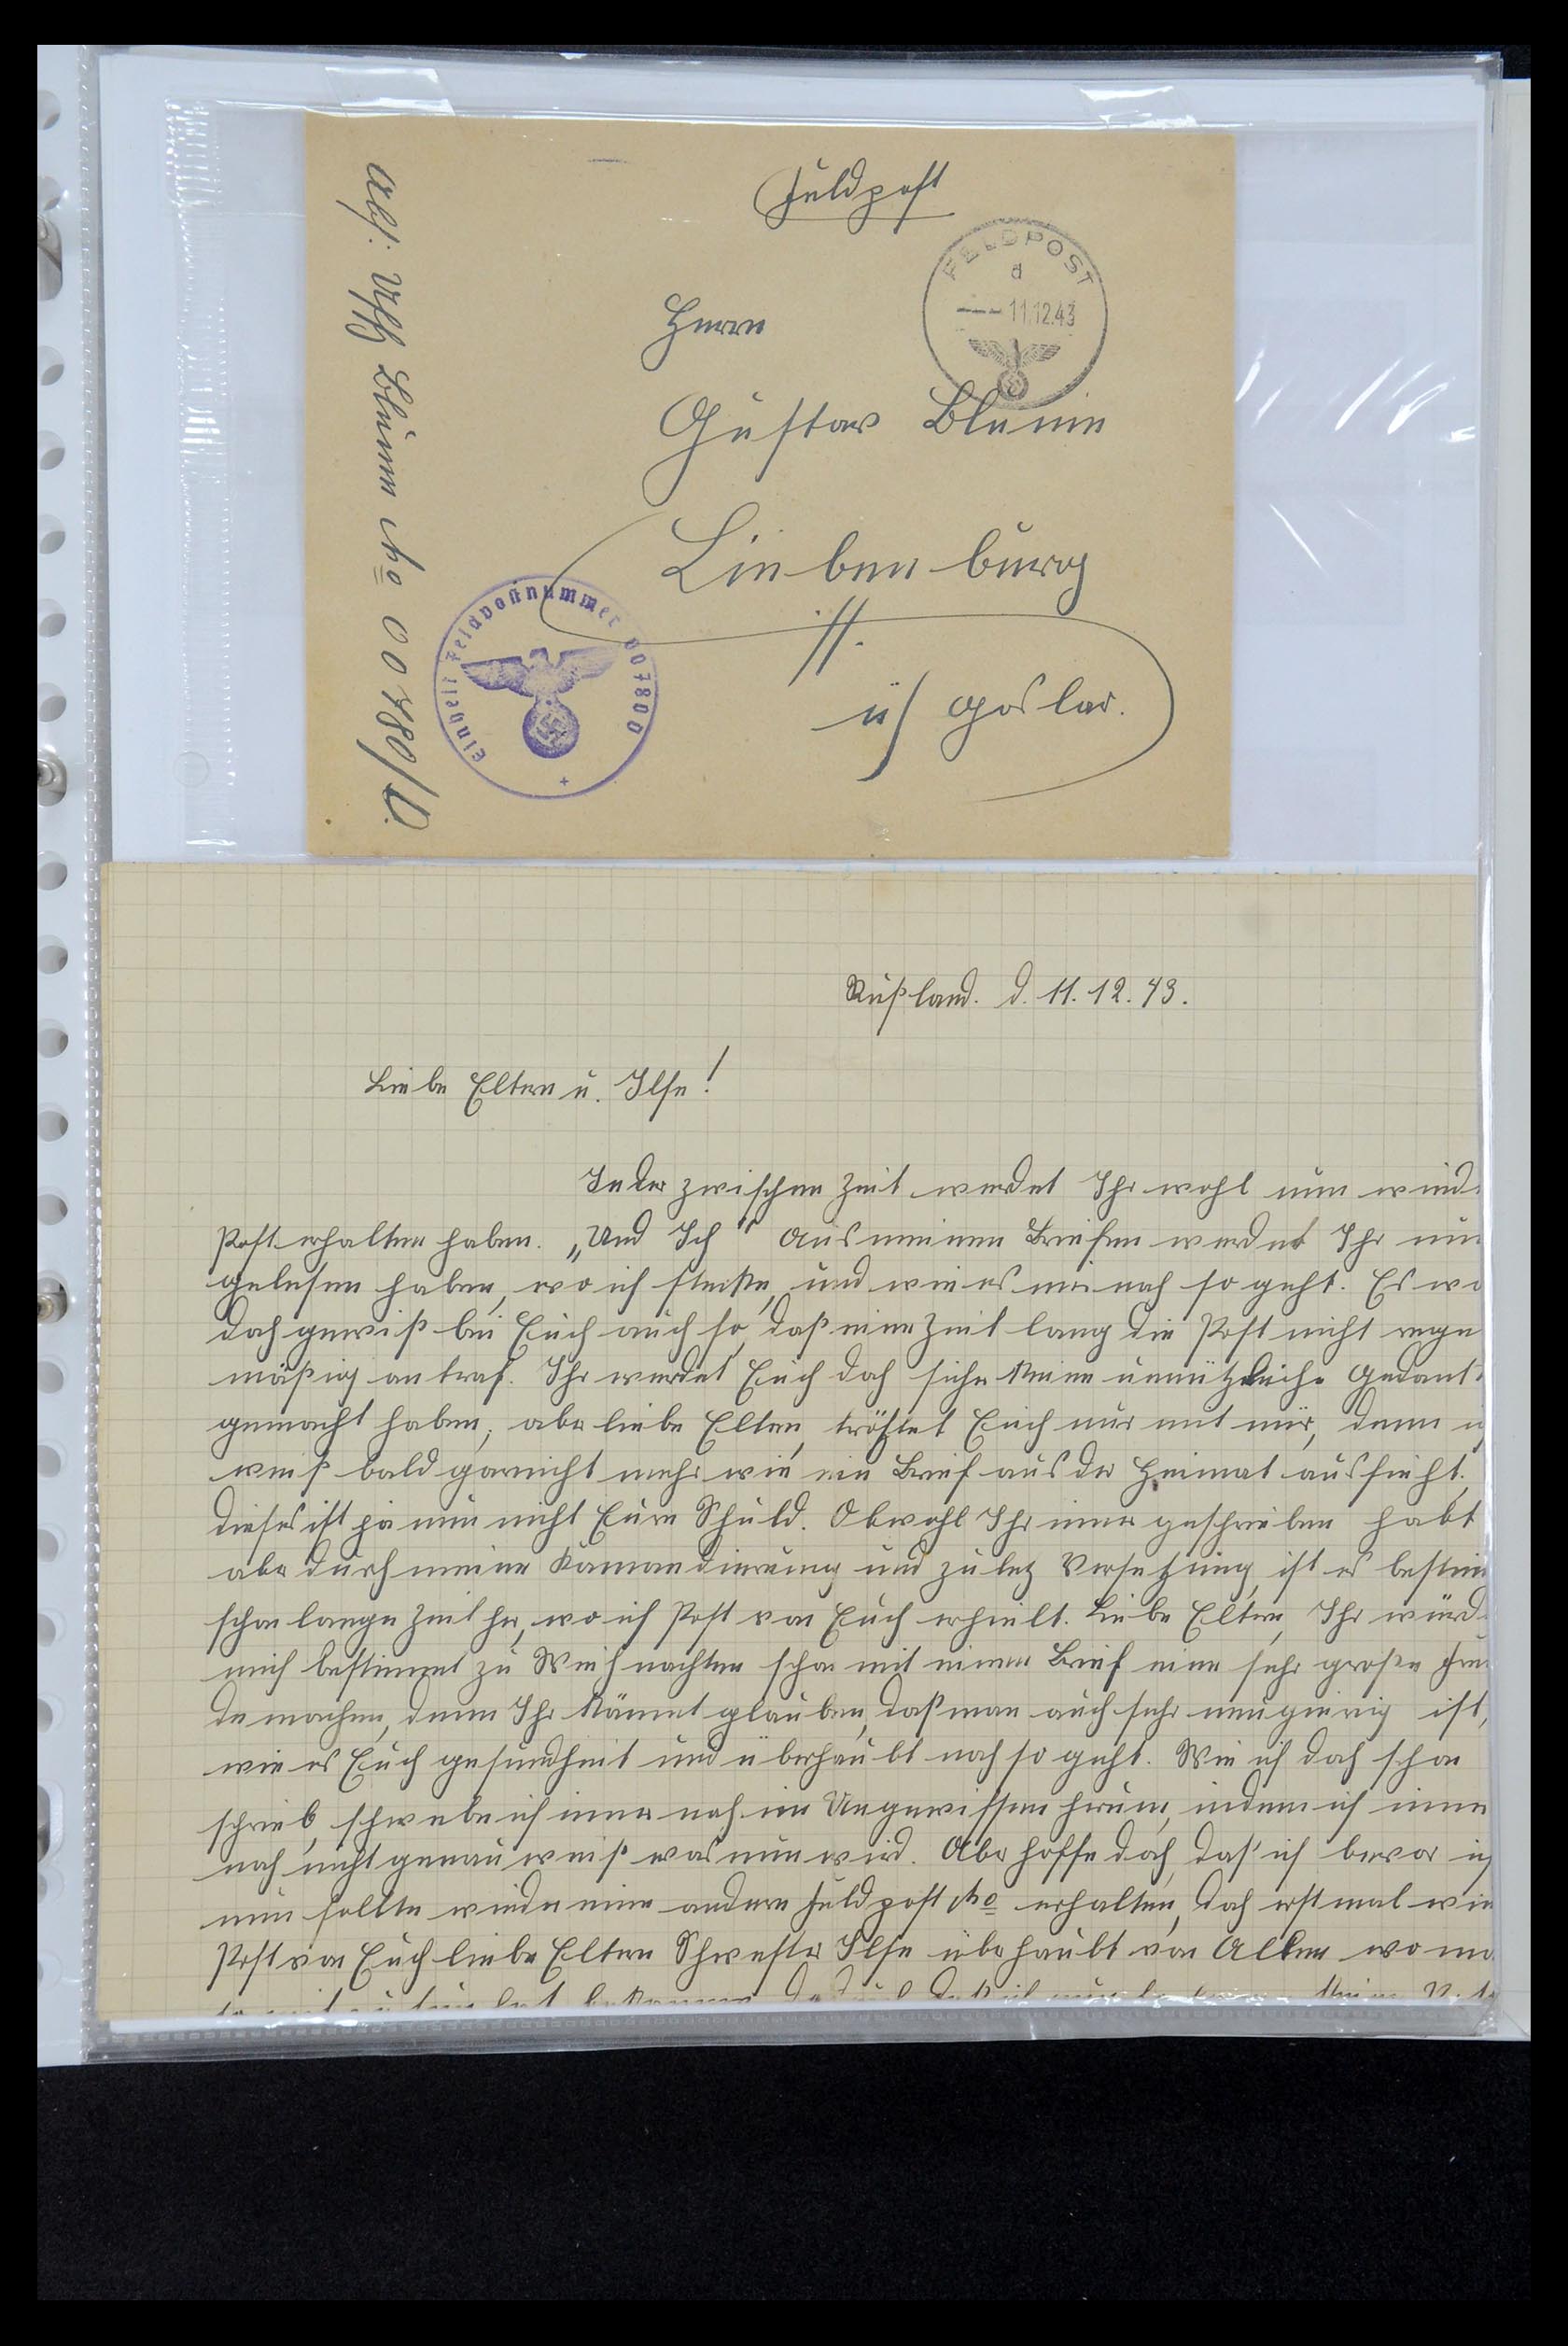 Feldpost
FELDPOST
d
11.12.43
Herrn
Gustav Blume
Liebenburg
ü/ Goslar.
Abs: Uffz Blume No 00780/D.
Einheit Feldpostnummer 00780D
Rußland. d. 11.12.43.
Liebe Eltern u. Ilse!
In der zwischen Zeit werdet Ihr wohl nun wied
Post erhalten haben. „Und Ich" Aus meinen Briefen werdet Ihr nun
gelesen haben, wo ich stecke, und wie es mir noch so geht. Es wa
doch gewiß bei Euch auch so, daß eine Zeit lang die Post nicht rege
mäßig antraf. Ihr werdet Euch doch sicher keine unnützliche Gedank
gemacht haben, aber liebe Eltern, tröstet Euch nur mit mir, denn ich
weiß bald garnicht mehr wie ein Brief aus der Heimat aussieht.
dieses ist ja nun nicht Eure Schuld. Obwohl Ihr immer geschrieben habt
aber durch meine Kamandierung und zuletz Versetzung, ist es bestim
schon lange Zeit her, wo ich Post von Euch erhielt. Liebe Eltern, Ihr würd
mich bestimmt zu Weihnachten schon mit einen Brief eine sehr große Freu
de machen, denn Ihr könnt glauben, daß man auch sehr neugierig ist,
wie es Euch gesundheit und überhaubt noch so geht. Wie ich doch schon
schrieb, schwebe ich immer noch im Ungewissen herum, indem ich imme
noch nicht genau weiß was nun wird. Aber hoffe doch, das ich bevor ich
nun sollte wieder eine andere Feldpost No erhalten, doch erstmal wie
Post von Euch liebe Eltern Schwester Ilse überhaubt von Allen wo mo